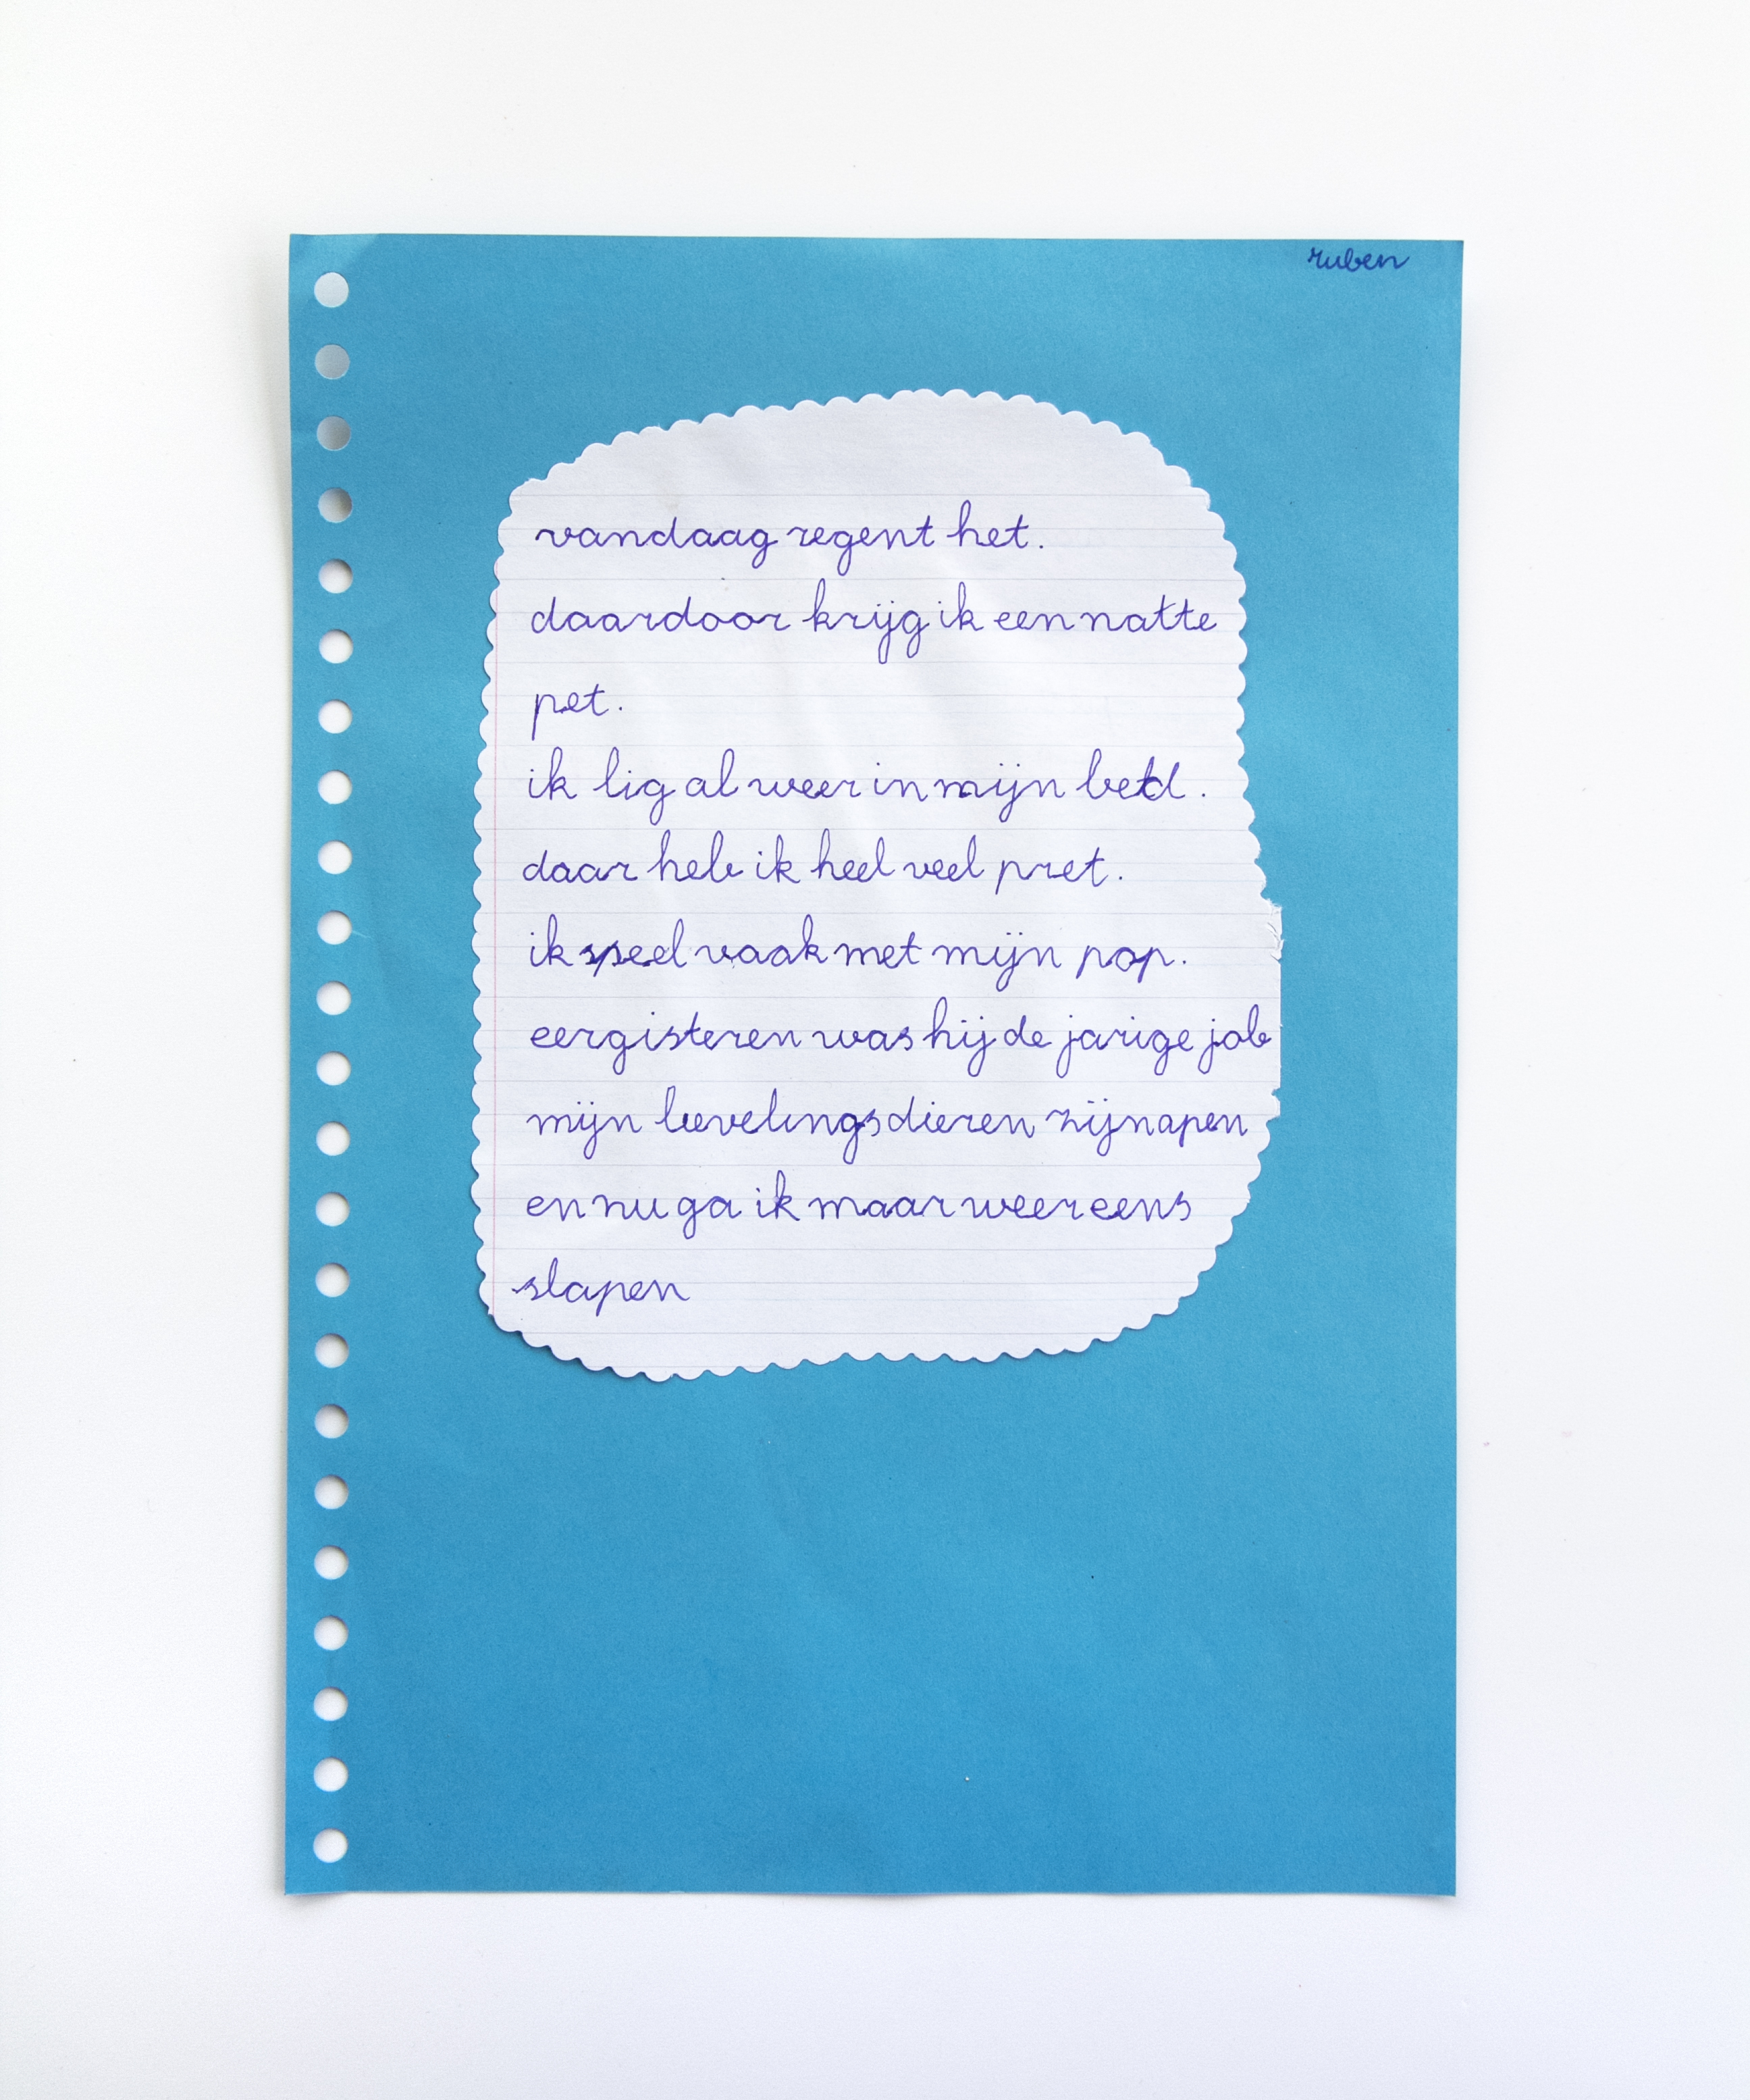 ruben
vandaag regent het.
daardoor krijg ik een natte
pet.
ik lig al weer in mijn bed.
daar heb ik heel veel pret.
ik speel vaak met mijn pop.
eergisteren was hij de jarige job
mijn lievelingsdieren zijn apen
en nu ga ik maar weer eens
slapen